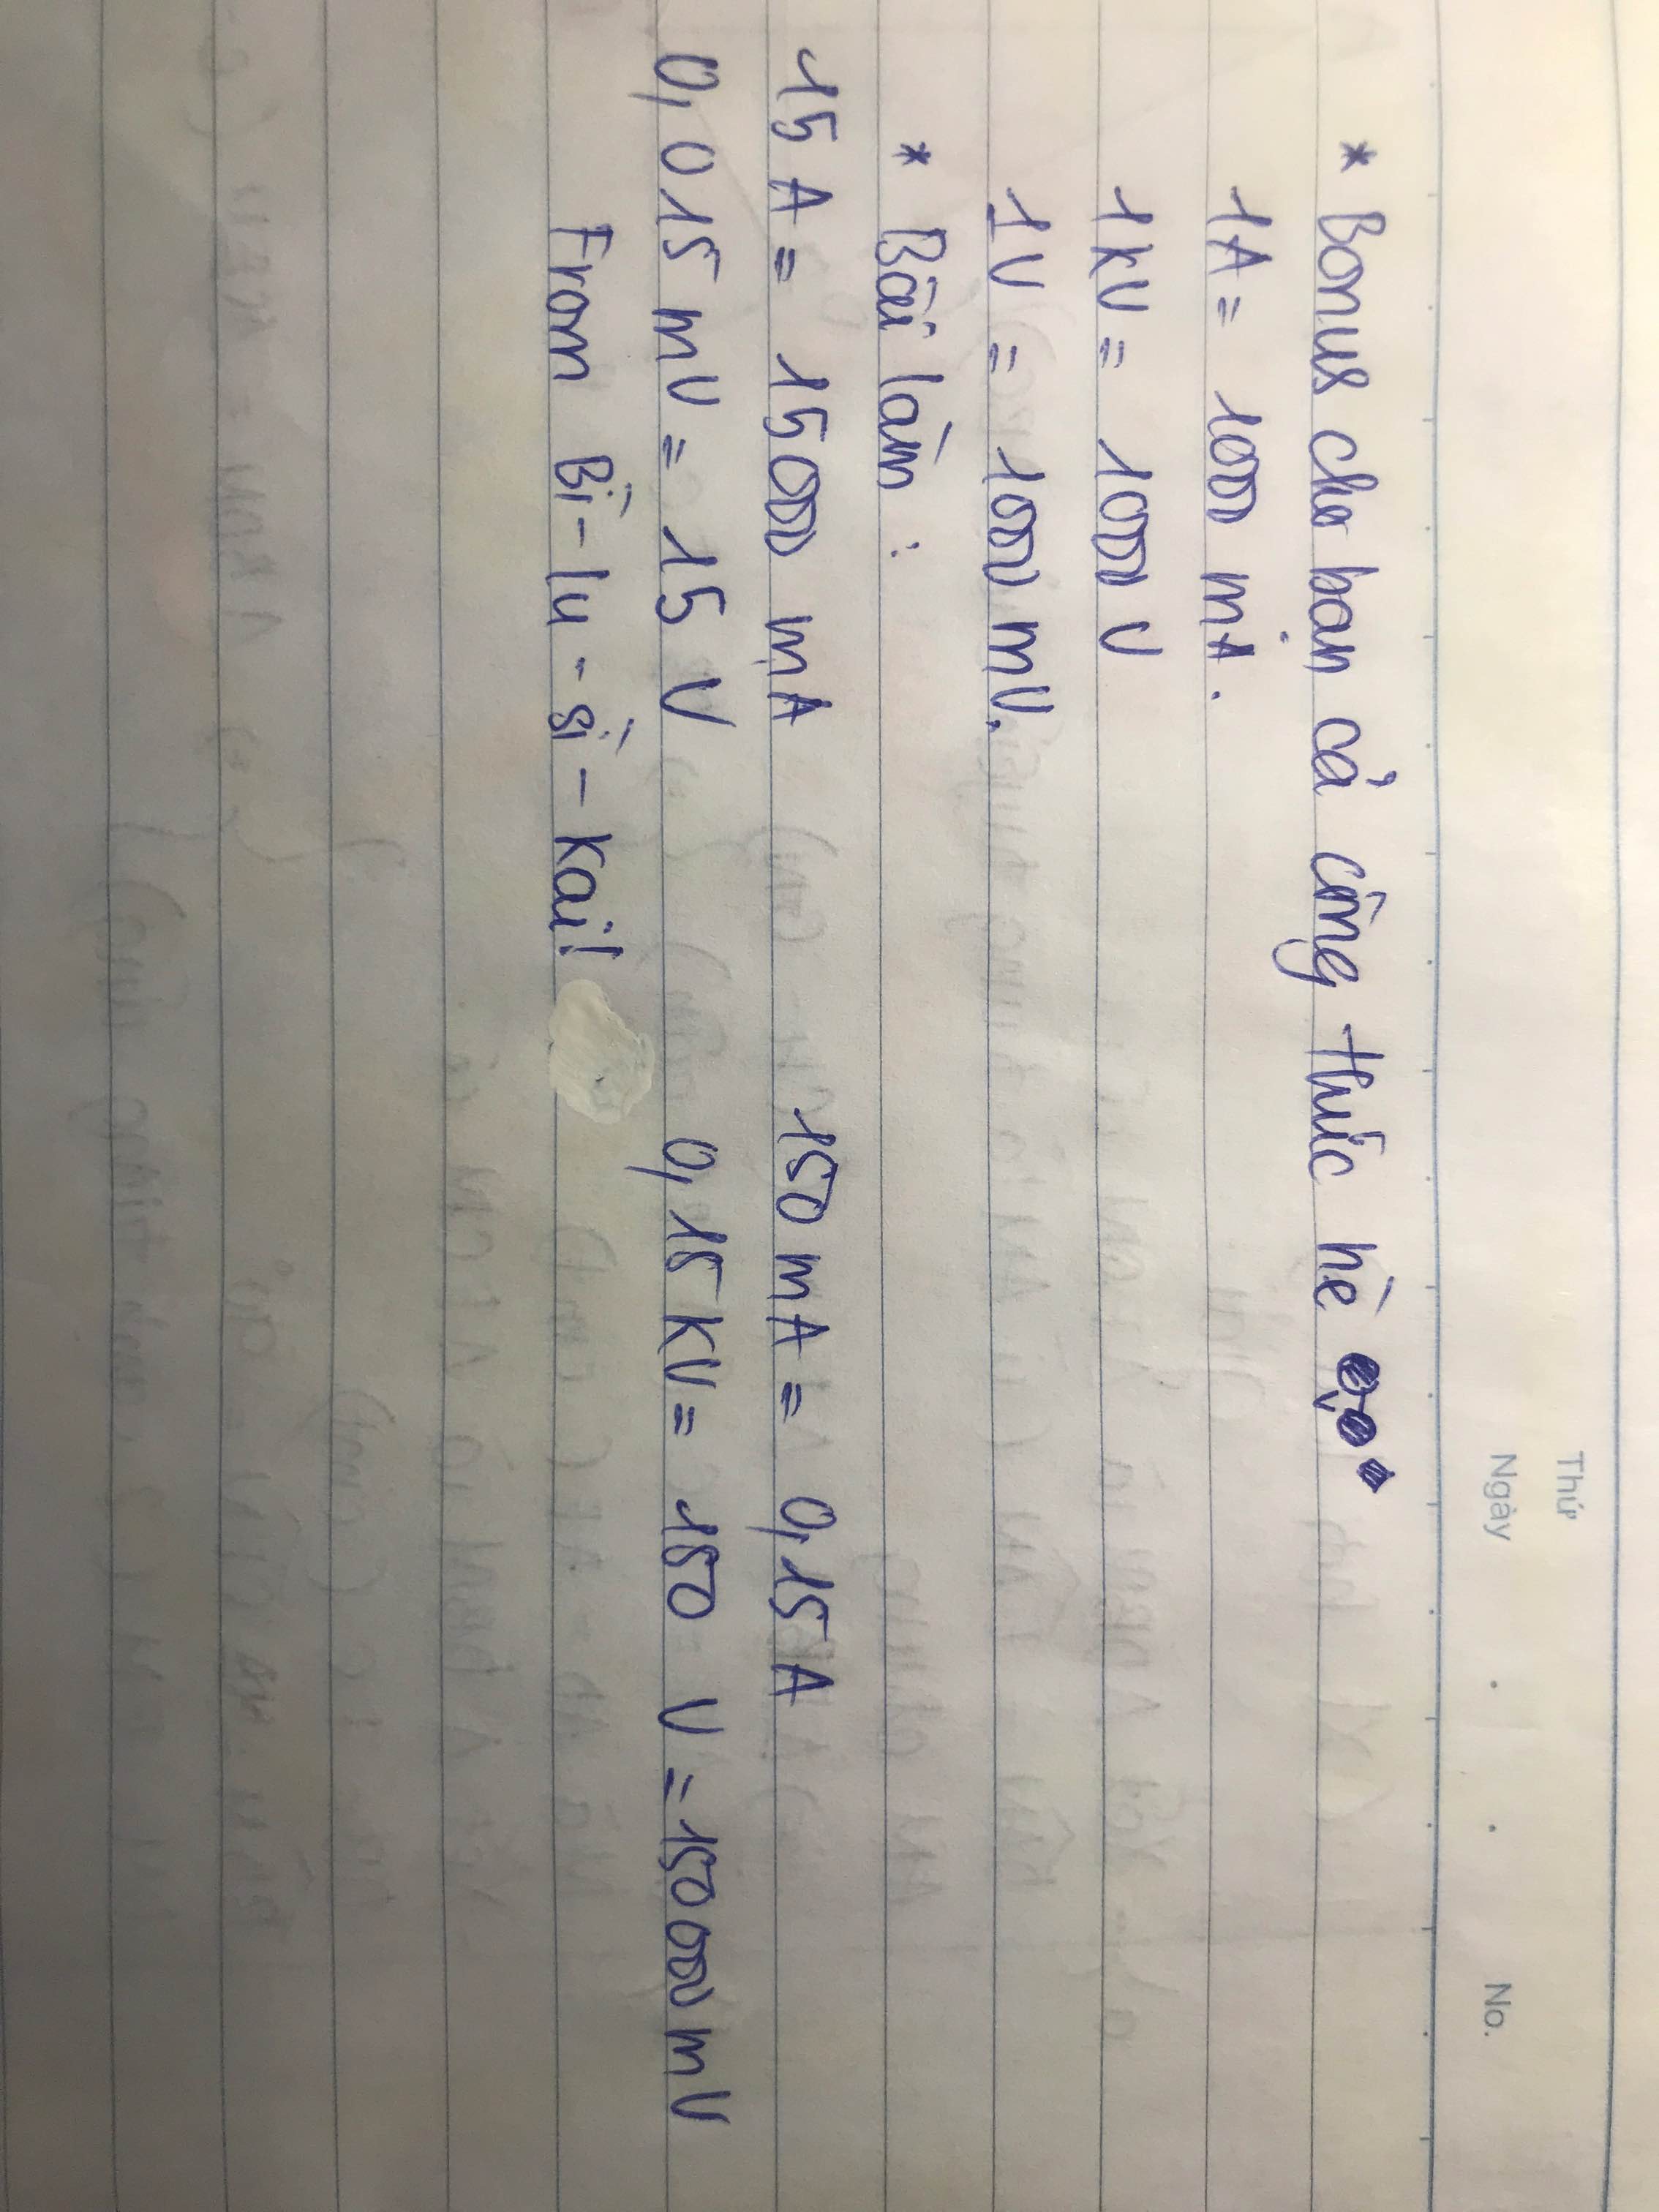 Thứ
Ngày . . No.
* Bonus cho bạn cả công thức nè
1A = 1000 mA.
1kV = 1000 V
1V = 1000 mV.
* Bài làm :
15 A = 15000 mA 150 mA = 0,15 A
0,015 mV = 15 V 0,15 KV = 150 V = 150000 mV
From Bì-lu-sì-kai!